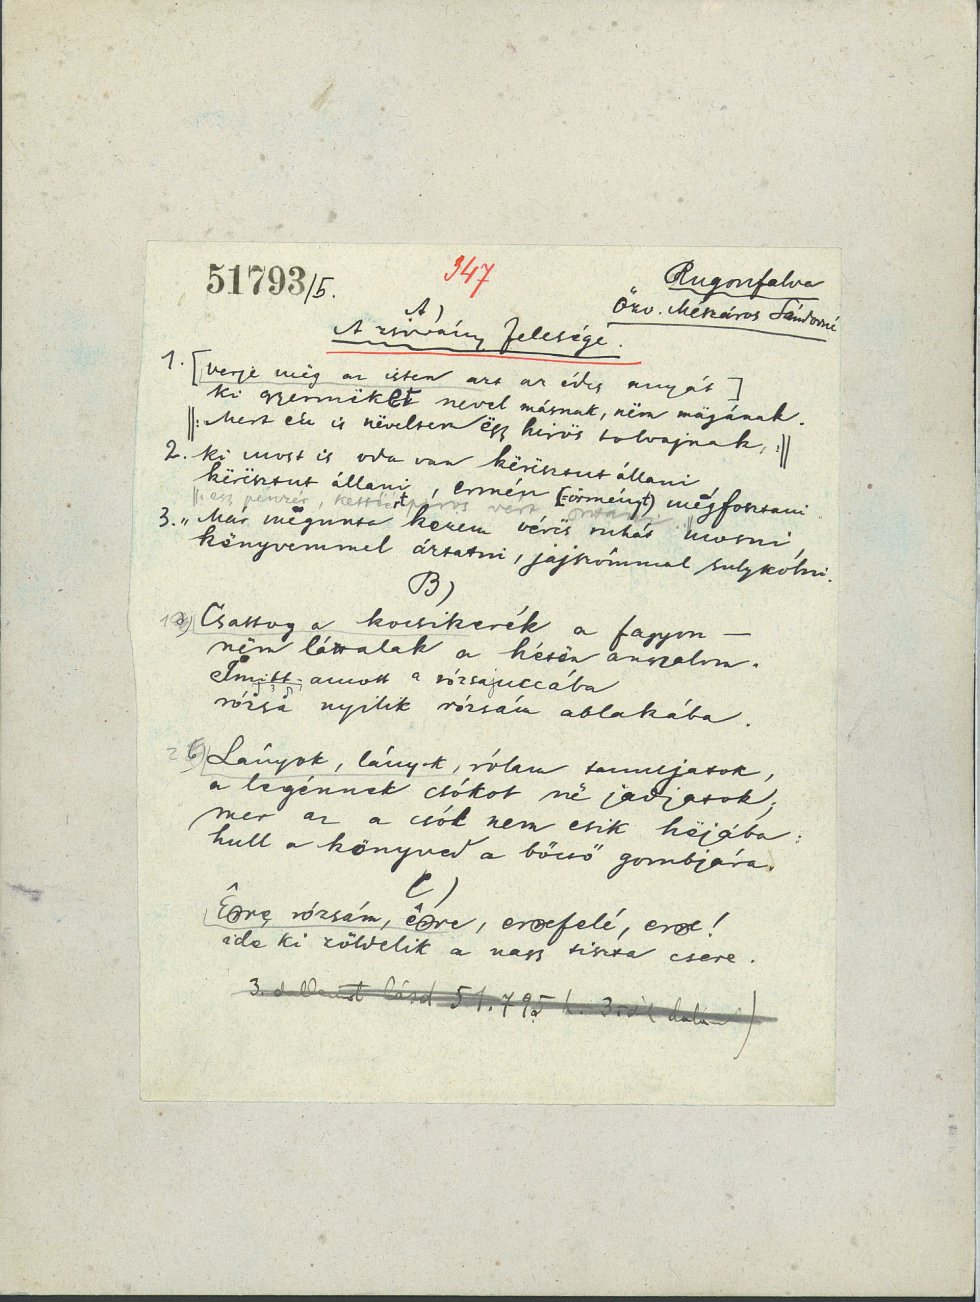 51793/5.
947
Rugonfalva
Özv. Mészáros Sándorné
A)
A zsivány felesége.
1. [verje mëg az isten azt az édes annyát]
ki gyermëkët nevel másnak, nëm magának.
||: Mert én is nëveltem ëgy hirös tolvajnak, :||
2. Ki most is oda van këresztut állani
këresztut állani, ermén [(örményt) mëgfosztani
||: egy pénzér, kettőér páros vért
3. „Már mëgunta kezem vérös ruhát mosni,
könyvemmel áztatni, jajszómmal sulykolni.
B)
a) Csattog a kocsikerék a fagyon —
nëm láttalak a hétën angyalom.
Imitt-amott a rózsauccába
rózsa nyilik rózsám ablakába.
2 b) Lányok, lányok, rólam tanuljatok,
a legénnek csókot në adjatok,
mer az a csók nem esik hëjába:
hull a könyved a bőcső gombjára.
C)
Ërre rózsám, ërre, errefelé, erre!
ide ki zöldelik a nagy tiszta csere.
3. dallamot lásd 51.795